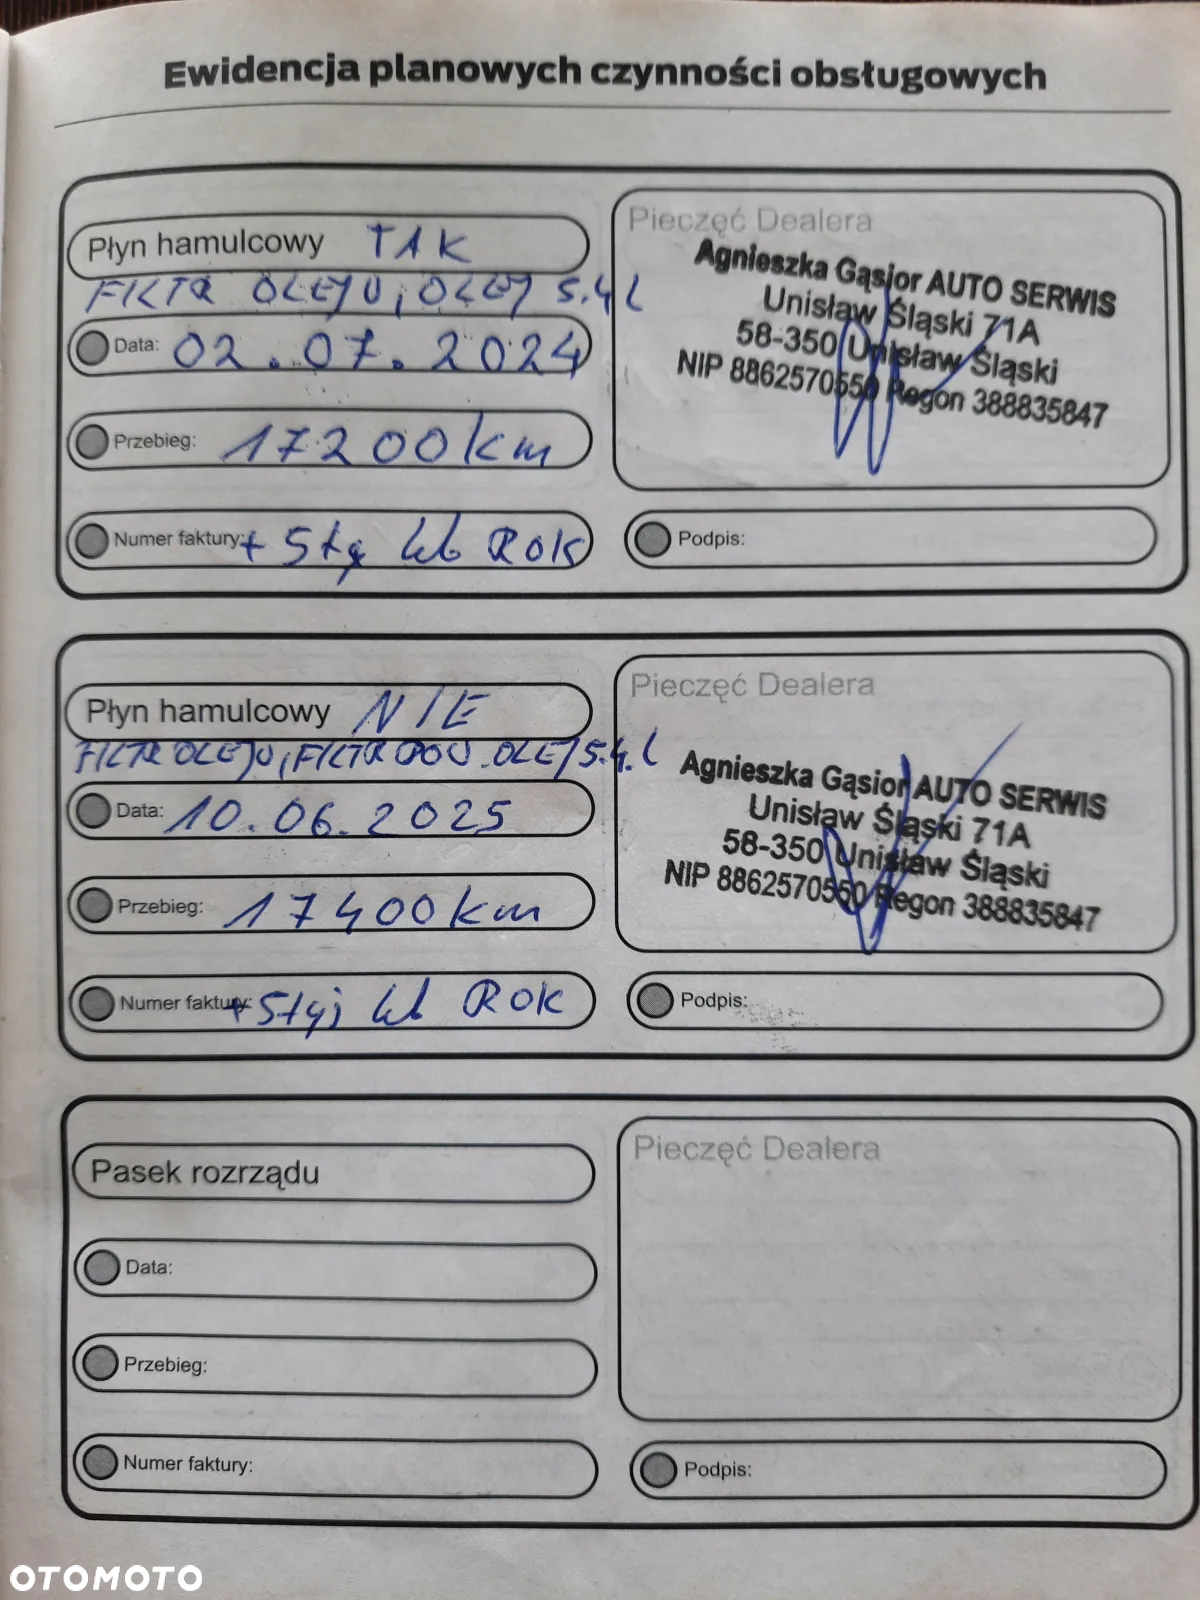 Ewidencja planowych czynności obsługowych
Płyn hamulcowy TAK
FILTR OLEJU, OLEJ 5.4 L
Data: 02.07.2024
Przebieg: 17200km
Numer faktury: + 5ty lub ROK
Pieczęć Dealera
Agnieszka Gąsior AUTO SERWIS
Unisław Śląski 71A
58-350 Unisław Śląski
NIP 8862570550 Regon 388835847
Podpis:
Płyn hamulcowy NIE
FILTR OLEJU, FILTR POW. OLEJ 5.4.L
Data: 10.06.2025
Przebieg: 17400km
Numer faktury: + lub ROK
Pieczęć Dealera
Agnieszka Gąsior AUTO SERWIS
Unisław Śląski 71A
58-350 Unisław Śląski
NIP 8862570550 Regon 388835847
Podpis:
Pasek rozrządu
Data:
Przebieg:
Numer faktury:
Pieczęć Dealera
Podpis:
OTOMOTO